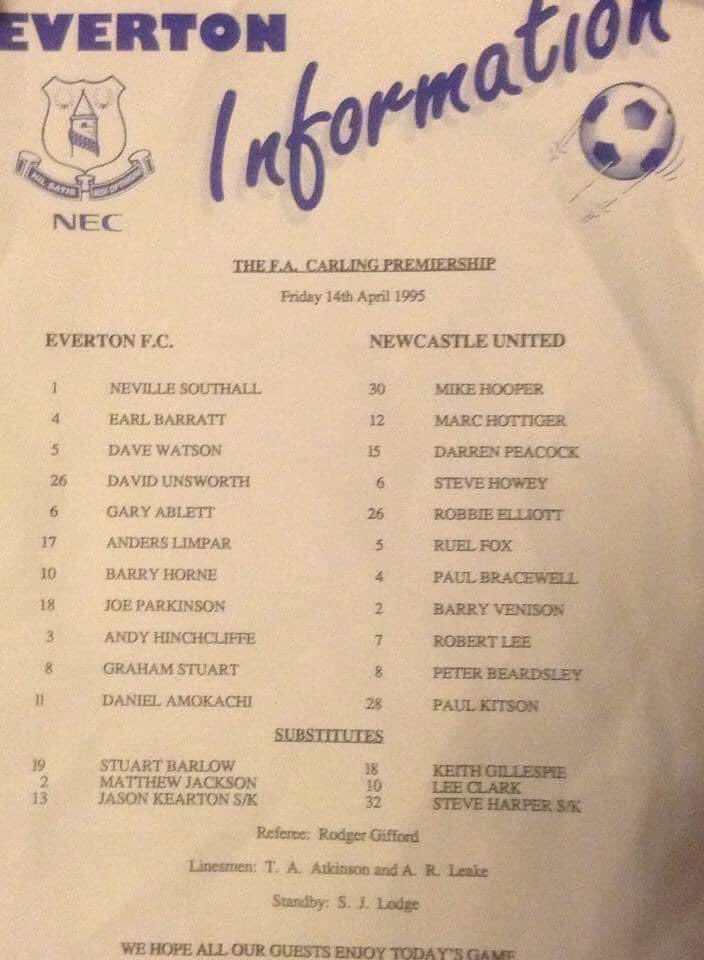 EVERTON
Information
NIL SATIS NISI OPTIMUM
NEC
THE F.A. CARLING PREMIERSHIP
Friday 14th April 1995
EVERTON F.C. NEWCASTLE UNITED
1 NEVILLE SOUTHALL 30 MIKE HOOPER
4 EARL BARRATT 12 MARC HOTTIGER
5 DAVE WATSON 15 DARREN PEACOCK
26 DAVID UNSWORTH 6 STEVE HOWEY
6 GARY ABLETT 26 ROBBIE ELLIOTT
17 ANDERS LIMPAR 5 RUEL FOX
10 BARRY HORNE 4 PAUL BRACEWELL
18 JOE PARKINSON 2 BARRY VENISON
3 ANDY HINCHCLIFFE 7 ROBERT LEE
8 GRAHAM STUART 8 PETER BEARDSLEY
11 DANIEL AMOKACHI 28 PAUL KITSON
SUBSTITUTES
19 STUART BARLOW 18 KEITH GILLESPIE
2 MATTHEW JACKSON 10 LEE CLARK
13 JASON KEARTON S/K 32 STEVE HARPER S/K
Referee: Rodger Gifford
Linesmen: T. A. Atkinson and A. R. Leake
Standby: S. J. Lodge
WE HOPE ALL OUR GUESTS ENJOY TODAY'S GAME